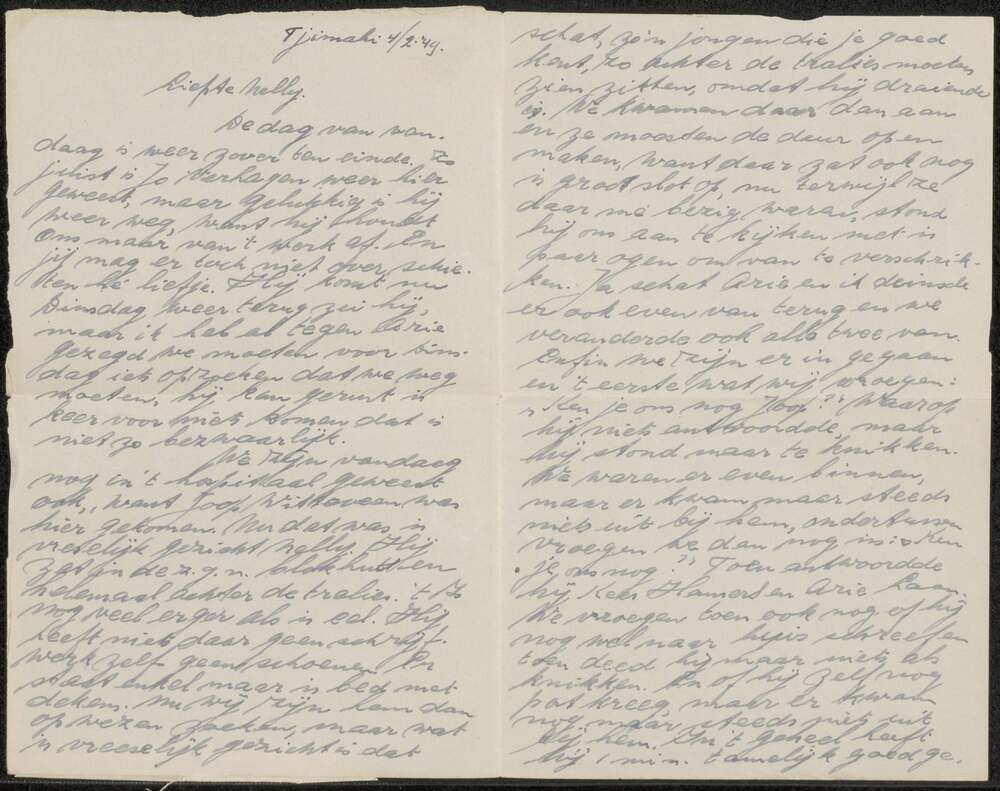 Tjimahi 4/2.'49.
Liefste Nelly.
De dag van van-
daag is weer zover ten einde. Zo
juist is Jo Verhagen weer hier
geweest, maar gelukkig is hij
weer weg, want hij houdt
ons maar van 't werk af. En
jij mag er toch niet over schie-
ten hé liefje. Hij komt nu
Dinsdag weer terug zei hij,
maar ik heb al tegen Arie
gezegd we moeten voor Dins-
dag iets opzoeken dat we weg
moeten, hij kan gerust is
keer voor niets komen dat is
niet zo bezwaarlijk.
We zijn vandaag
nog in 't hospitaal geweest
ook, want Joop Witteveen was
hier gekomen. Nu dat was is
vreselijk gezicht Nelly. Hij
zat in de z.g.n. blokhutten
helemaal achter de tralies. 't Is
nog veel erger als is cel. Hij
heeft niets daar geen schrijf-
werk zelf geen schoenen. Er
staat enkel maar is bed met
deken. Nu wij zijn hem dan
op wezen zoeken, maar wat
is vreeselijk gezicht is dat
schat, zo'n jongen die je goed
kent, zo achter de tralies moeten
zien zitten, omdat hij draiende
is. We kwamen daar dan aan
en ze moesten de deur open
maken, want daar zat ook nog
is groot slot op, nu terwijl ze
daar mé bezig waren, stond
hij ons aan te kijken met is
paar ogen om van te verschrik-
ken. Ja schat Arie en ik deinsde
er ook even van terug en we
veranderde ook alle twee van.
Enfin we zijn er in gegaan
en 't eerste wat wij vroegen:
"Ken je ons nog Joop?" Waarop
hij niets antwoordde, maar
hij stond maar te knikken.
We waren er even binnen,
maar er kwam maar steeds
niets uit bij hem, ondertussen
vroegen we dan nog is: "Ken
je ons nog?" Toen antwoordde
hij Kees Hamers en Arie Kaan.
We vroegen toen ook nog of hij
nog wel naar huis schreef en
toen deed hij maar niets als
knikken. En of hij zelf nog
post kreeg, maar er kwam
nog maar steeds niets uit
bij hem. In 't geheel heeft
hij 1 min. tamelijk goed ge.